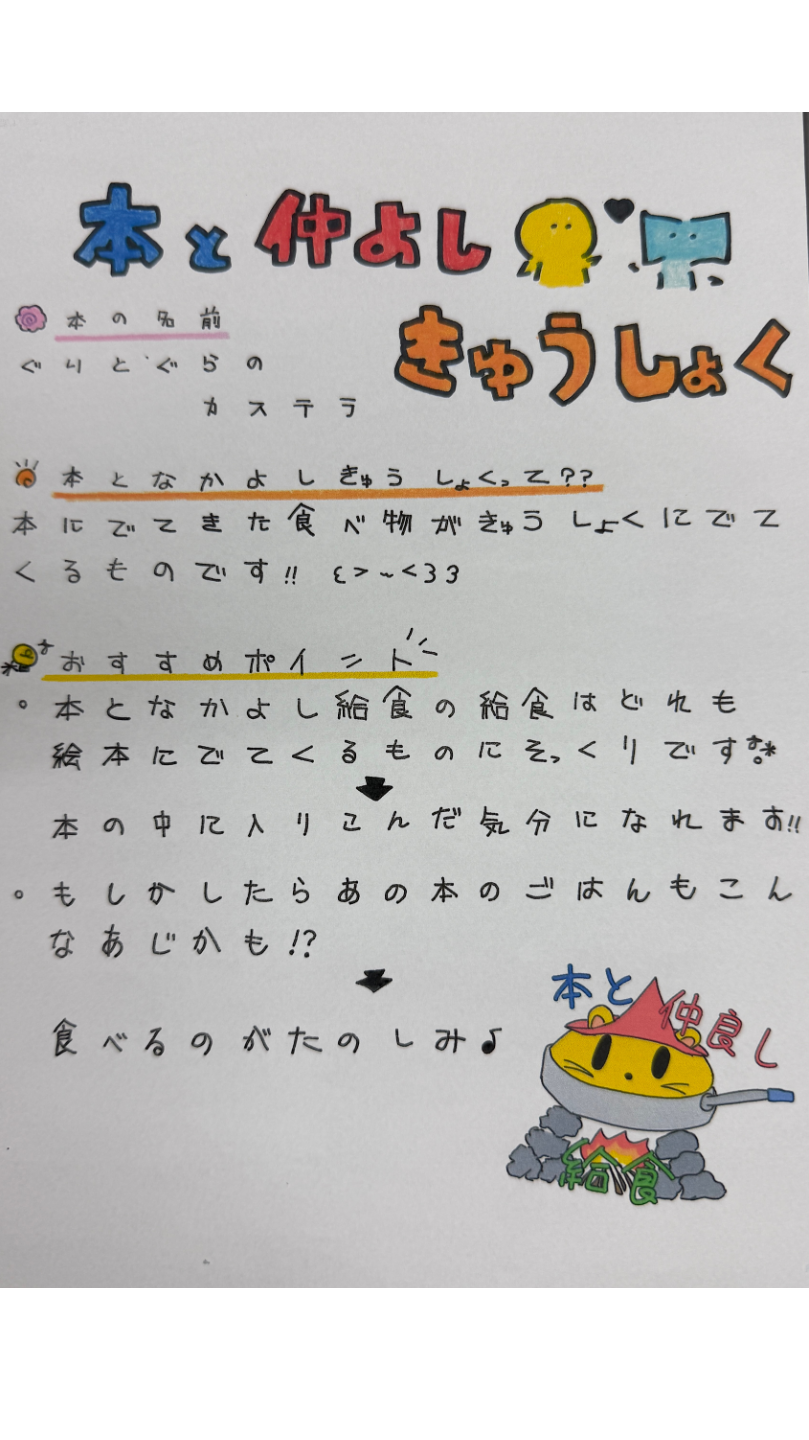 本と仲よし
きゅうしょく
本の名前
ぐりとぐらの
カステラ
本となかよしきゅうしょくって??
本にでてきた食べ物がきゅうしょくにでて
くるものです!! ε>~<33
おすすめポイント
。本となかよし給食の給食はどれも
絵本にでてくるものにそっくりです。
本の中に入りこんだ気分になれます!!
。もしかしたらあの本のごはんもこん
なあじかも!?
食べるのがたのしみ♪
本と仲良し
給食